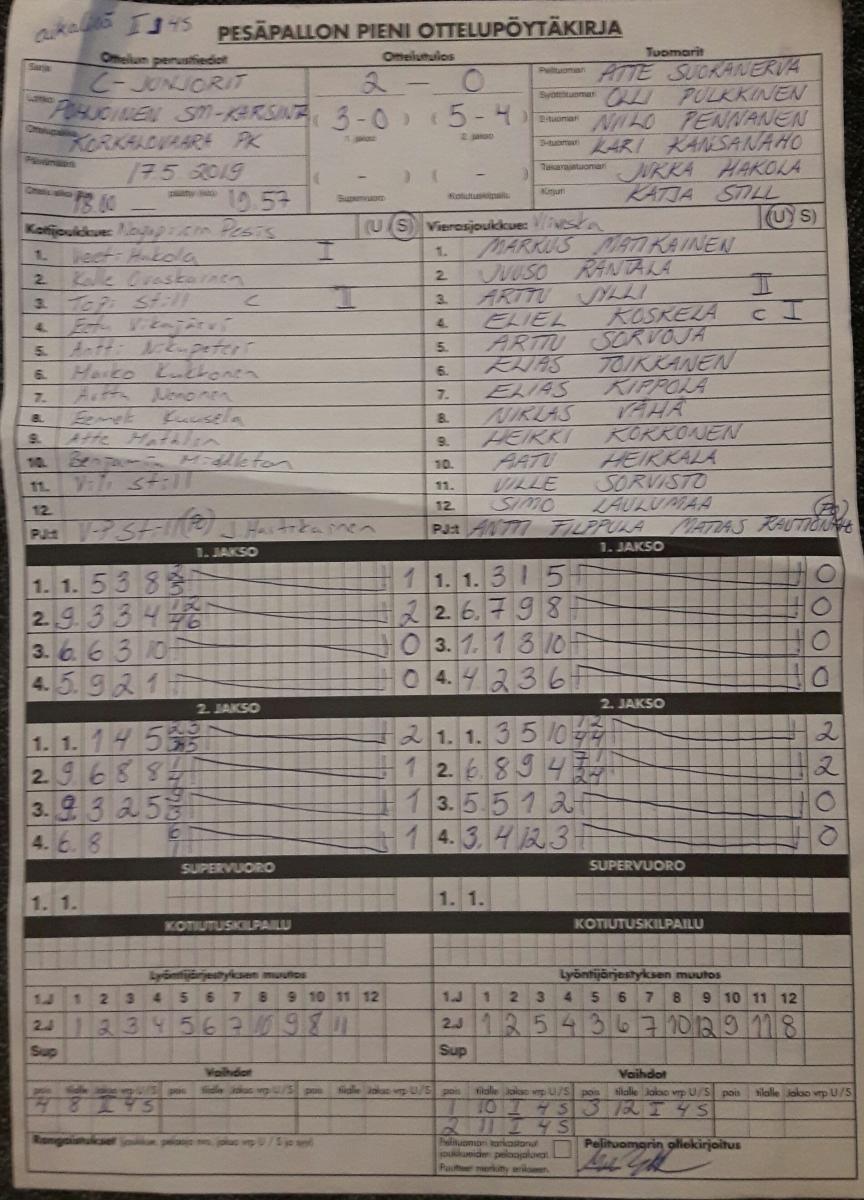 PESÄPALLON PIENI OTTELUPÖYTÄKIRJA
Ottelun perustiedot Ottelutulos Tuomarit
Sarja C-JUNIORIT 2 — 0 Pelituomari ATTE SUORANERVA
Lohko POHJOINEN SM-KARSINTA (3-0) (5-4) Syöttötuomari OLLI PULKKINEN
1. jakso 2. jakso 2-tuomari NIILO PENNANEN
Ottelupaikka KORKALOVAARA PK 3-tuomari KARI KANSANAHO
Päivämäärä 17.5.2019 ( - ) ( - ) Takarajatuomari JUKKA HAKOLA
Ottelu alkoi (klo) 18.00 — päättyi (klo) 19.57 Supervuoro Kotiutuskilpailu Kirjuri KATJA STILL
Kotijoukkue: Pesis (U S) Vierasjoukkue: (U S)
1. Veeti Hakola I 1. MARKUS MATIKAINEN
2. Kalle Ovaskainen 2. JUUSO RANTALA
3. Topi Still C II 3. ARTTU JYLLI II
4. Eetu Vikajärvi 4. ELIEL KOSKELA C I
5. Antti Nikupeteri 5. ARTTU SORVOJA
6. Marko Kukkonen 6. ELIAS TOIKKANEN
7. Arttu Nenonen 7. ELIAS KIPPOLA
8. Eemek Kuusela 8. NIKLAS VÄHÄ
9. Atte 9. HEIKKI KOKKONEN
10. Benjamin Middleton 10. AATU HEIKKALA
11. Vili Still 11. VILLE SORVISTO
12. 12. SIMO LAULUMAA
PJ:t V-P Still (PO) J. Hartikainen PJ:t ANTTI FILPPULA MATIAS (PO)
1. JAKSO 1. JAKSO
1. 1. 5 3 8 1 1. 1. 3 1 5 0
2. 9. 3 3 4 2 2. 6. 7 9 8 0
3. 6. 6 3 10 0 3. 1. 1 8 10 0
4. 5. 9 2 1 0 4. 4. 2 3 6 0
2. JAKSO 2. JAKSO
1. 1. 1 4 5 2 1. 1. 3 5 10 2
2. 9. 6 8 8 1 2. 6. 8 9 4 2
3. 9. 3 2 5 1 3. 5. 5 1 2 0
4. 6. 8 1 4. 3. 4 12 3 0
SUPERVUORO SUPERVUORO
1. 1. 1. 1.
KOTIUTUSKILPAILU KOTIUTUSKILPAILU
Lyöntijärjestyksen muutos Lyöntijärjestyksen muutos
1.J 1 2 3 4 5 6 7 8 9 10 11 12 1.J 1 2 3 4 5 6 7 8 9 10 11 12
2.J 1 2 3 4 5 6 7 10 9 8 11 2.J 1 2 5 4 3 6 7 10 12 9 11 8
Sup Sup
Vaihdot Vaihdot
pois tilalle Jakso vrp U/S pois tilalle Jakso vrp U/S pois tilalle Jakso vrp U/S pois tilalle Jakso vrp U/S pois tilalle Jakso vrp U/S pois tilalle Jakso vrp U/S
4 8 I 4 S 1 10 I 4 S 3 12 I 4 S
2 11 I 4 S
Rangaistukset (joukkue, pelaaja nro, jakso vrp U / S ja syy) Pelituomari tarkastanut joukkueiden pelaajaluvat Pelituomarin allekirjoitus
Puutteet merkitty erikseen